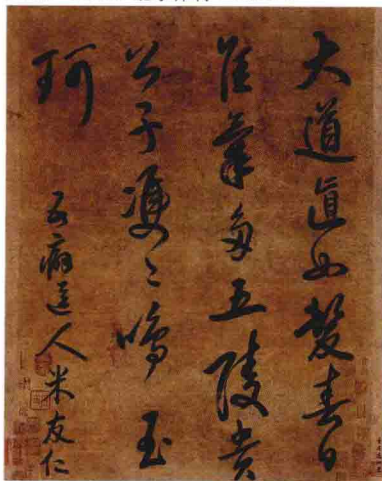 大道直如髮春日
佳氣多五陵貴
公子雙〻鳴玉
珂
道人米友仁